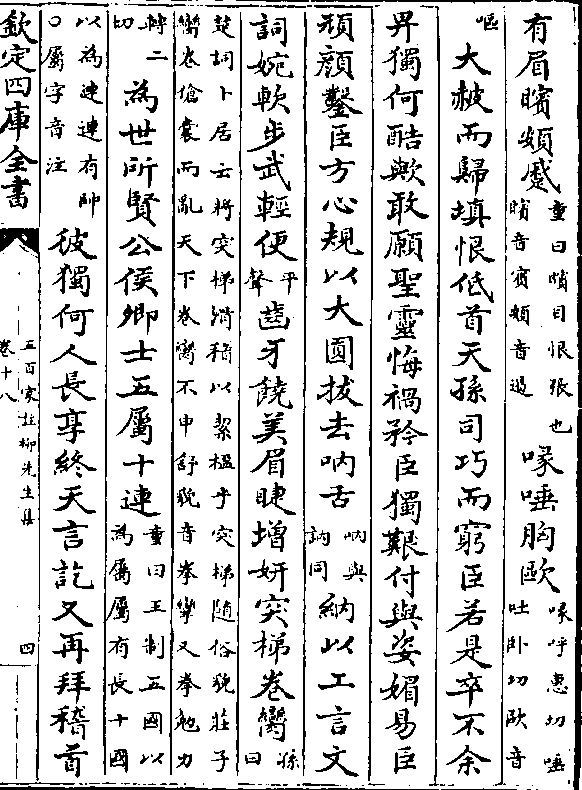 有眉矉頞蹙重曰矉目恨張也矉音賓頞音遏喙唾胸歐喙呼惠切唾吐卧切歐音
嘔大赧而歸填恨低首天孫司巧而窮臣若是卒不余
畀獨何酷歟敢願聖靈悔禍矜臣獨艱付與姿媚易臣
頑顔鑿臣方心規以大圓拔去吶舌吶與訥同納以工言文
詞婉軟步武輕便平聲齒牙饒美眉睫增妍突梯卷臠孫曰
楚詞卜居云將突梯滑稽以絜楹乎突梯隨俗貌莊子
臠卷傖囊而亂天下卷臠不申舒貌音拳攣又拳勉力
轉二切為世所賢公侯卿士五屬十連重曰王制五國以為屬屬有長十國
以為連連有帥○屬字音注彼獨何人長享終天言訖又再拜稽首
欽定四庫全書
五百家註柳先生集
卷十八
四